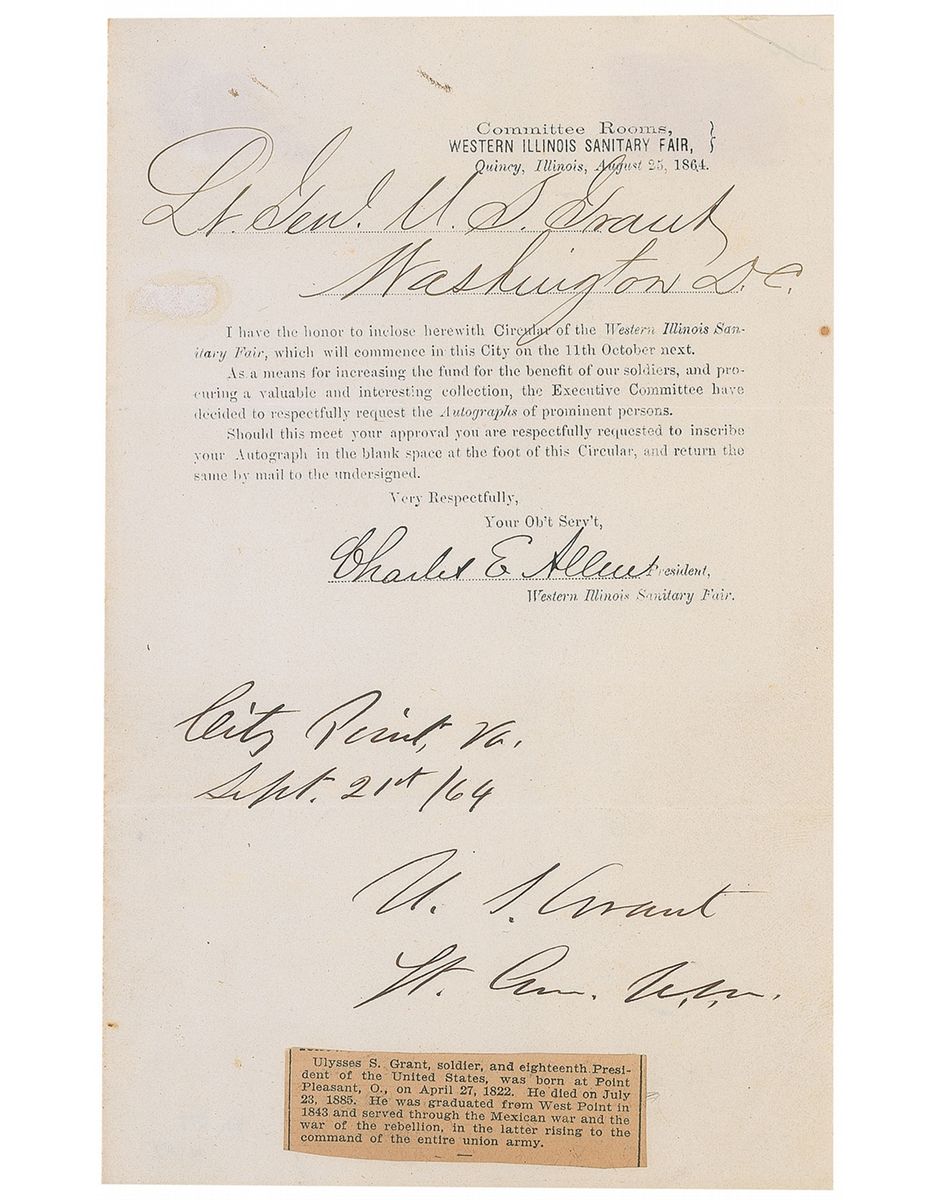 Committee Rooms,
WESTERN ILLINOIS SANITARY FAIR,
Quincy, Illinois, August 25, 1864.
Lt. Genl. U. S. Grant
Washington D.C.
I have the honor to inclose herewith Circular of the Western Illinois San-
itary Fair, which will commence in this City on the 11th October next.
As a means for increasing the fund for the benefit of our soldiers, and pro-
curing a valuable and interesting collection, the Executive Committee have
decided to respectfully request the Autographs of prominent persons.
Should this meet your approval you are respectfully requested to inscribe
your Autograph in the blank space at the foot of this Circular, and return the
same by mail to the undersigned.
Very Respectfully,
Your Ob't Serv't,
Charles E Allen President,
Western Illinois Sanitary Fair.
City Point, Va.
Sept. 21st /64
U. S. Grant
Lt. Gen. U.S.A.
Ulysses S. Grant, soldier, and eighteenth Presi-
dent of the United States, was born at Point
Pleasant, O., on April 27, 1822. He died on July
23, 1885. He was graduated from West Point in
1843 and served through the Mexican war and the
war of the rebellion, in the latter rising to the
command of the entire union army.